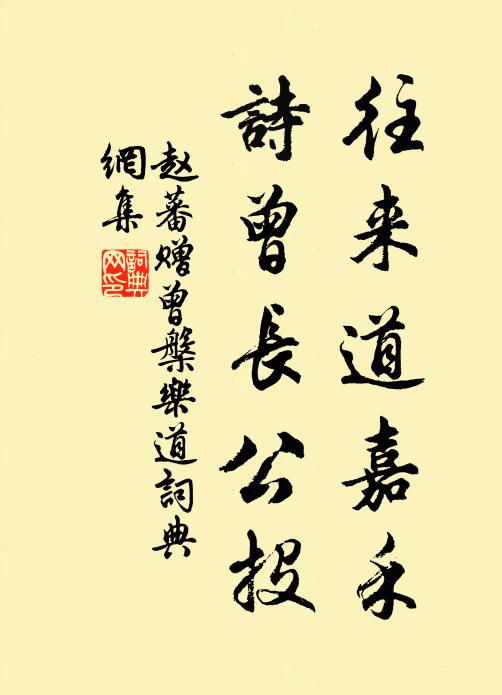 往来道嘉禾
詩曾長公投
赵蕃赠曾槃樂道詞典
網集
詞典网印